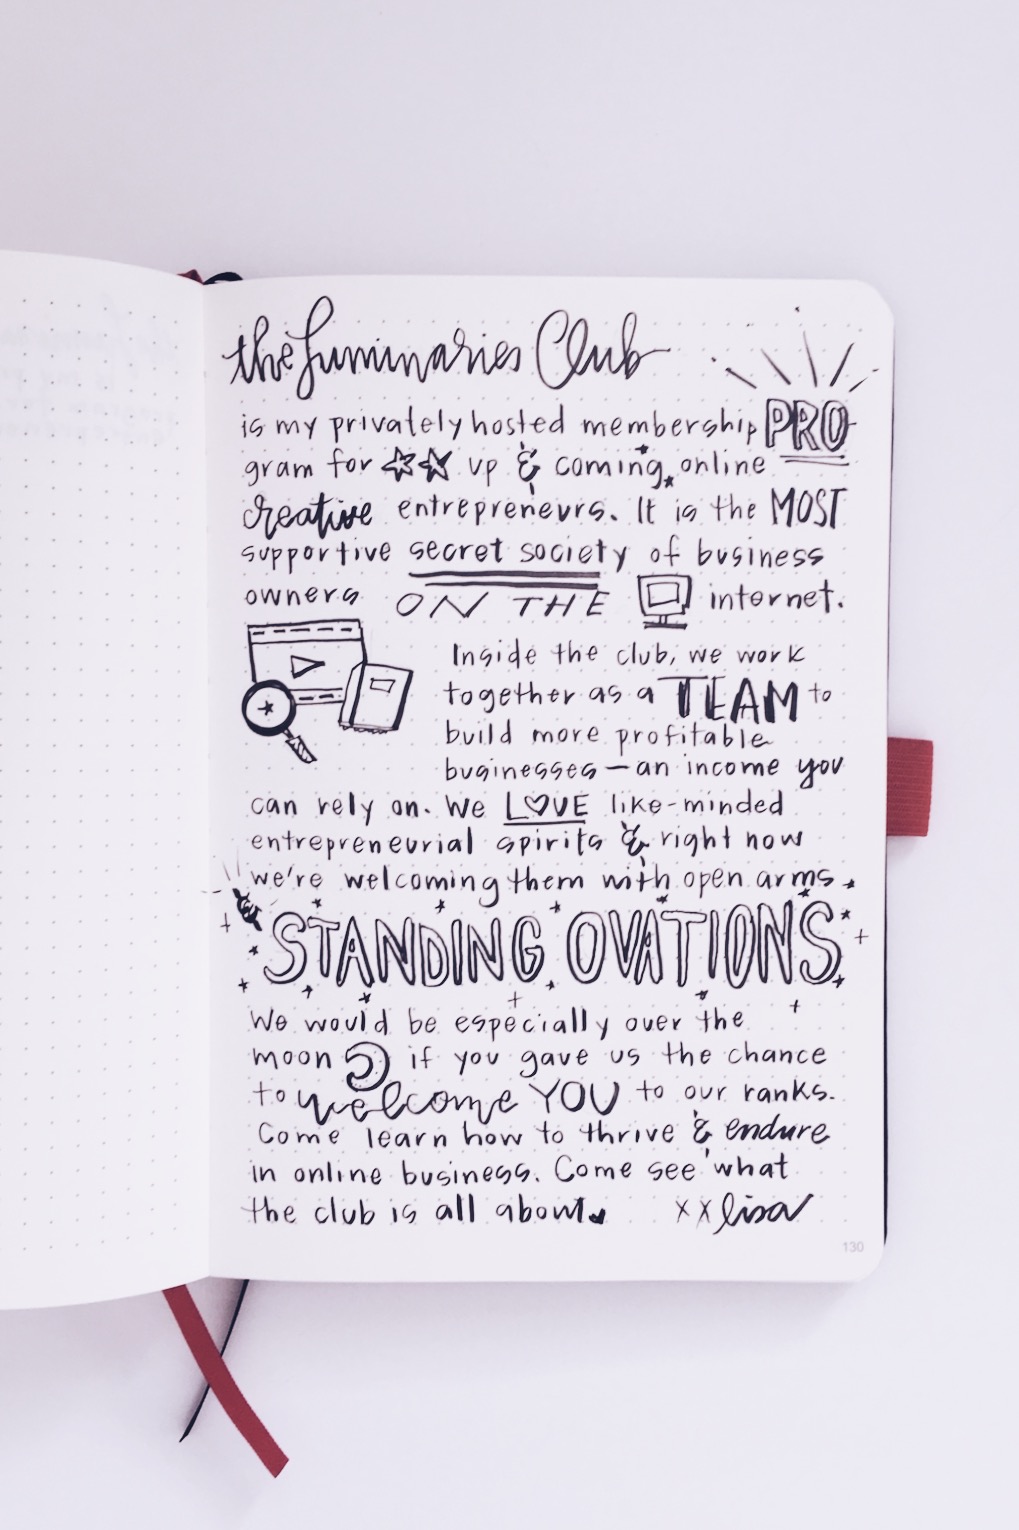 the Luminaries Club
is my privately hosted membership PRO
gram for up & coming online
creative entrepreneurs. It is the MOST
supportive secret society of business
owners ON THE internet.
Inside the club, we work
together as a TEAM to
build more profitable
businesses — an income you
can rely on. We LOVE like-minded
entrepreneurial spirits & right now
we're welcoming them with open arms
STANDING OVATIONS
We would be especially over the
moon if you gave us the chance
to welcome YOU to our ranks.
Come learn how to thrive & endure
in online business. Come see what
the club is all about. xx lisa
130